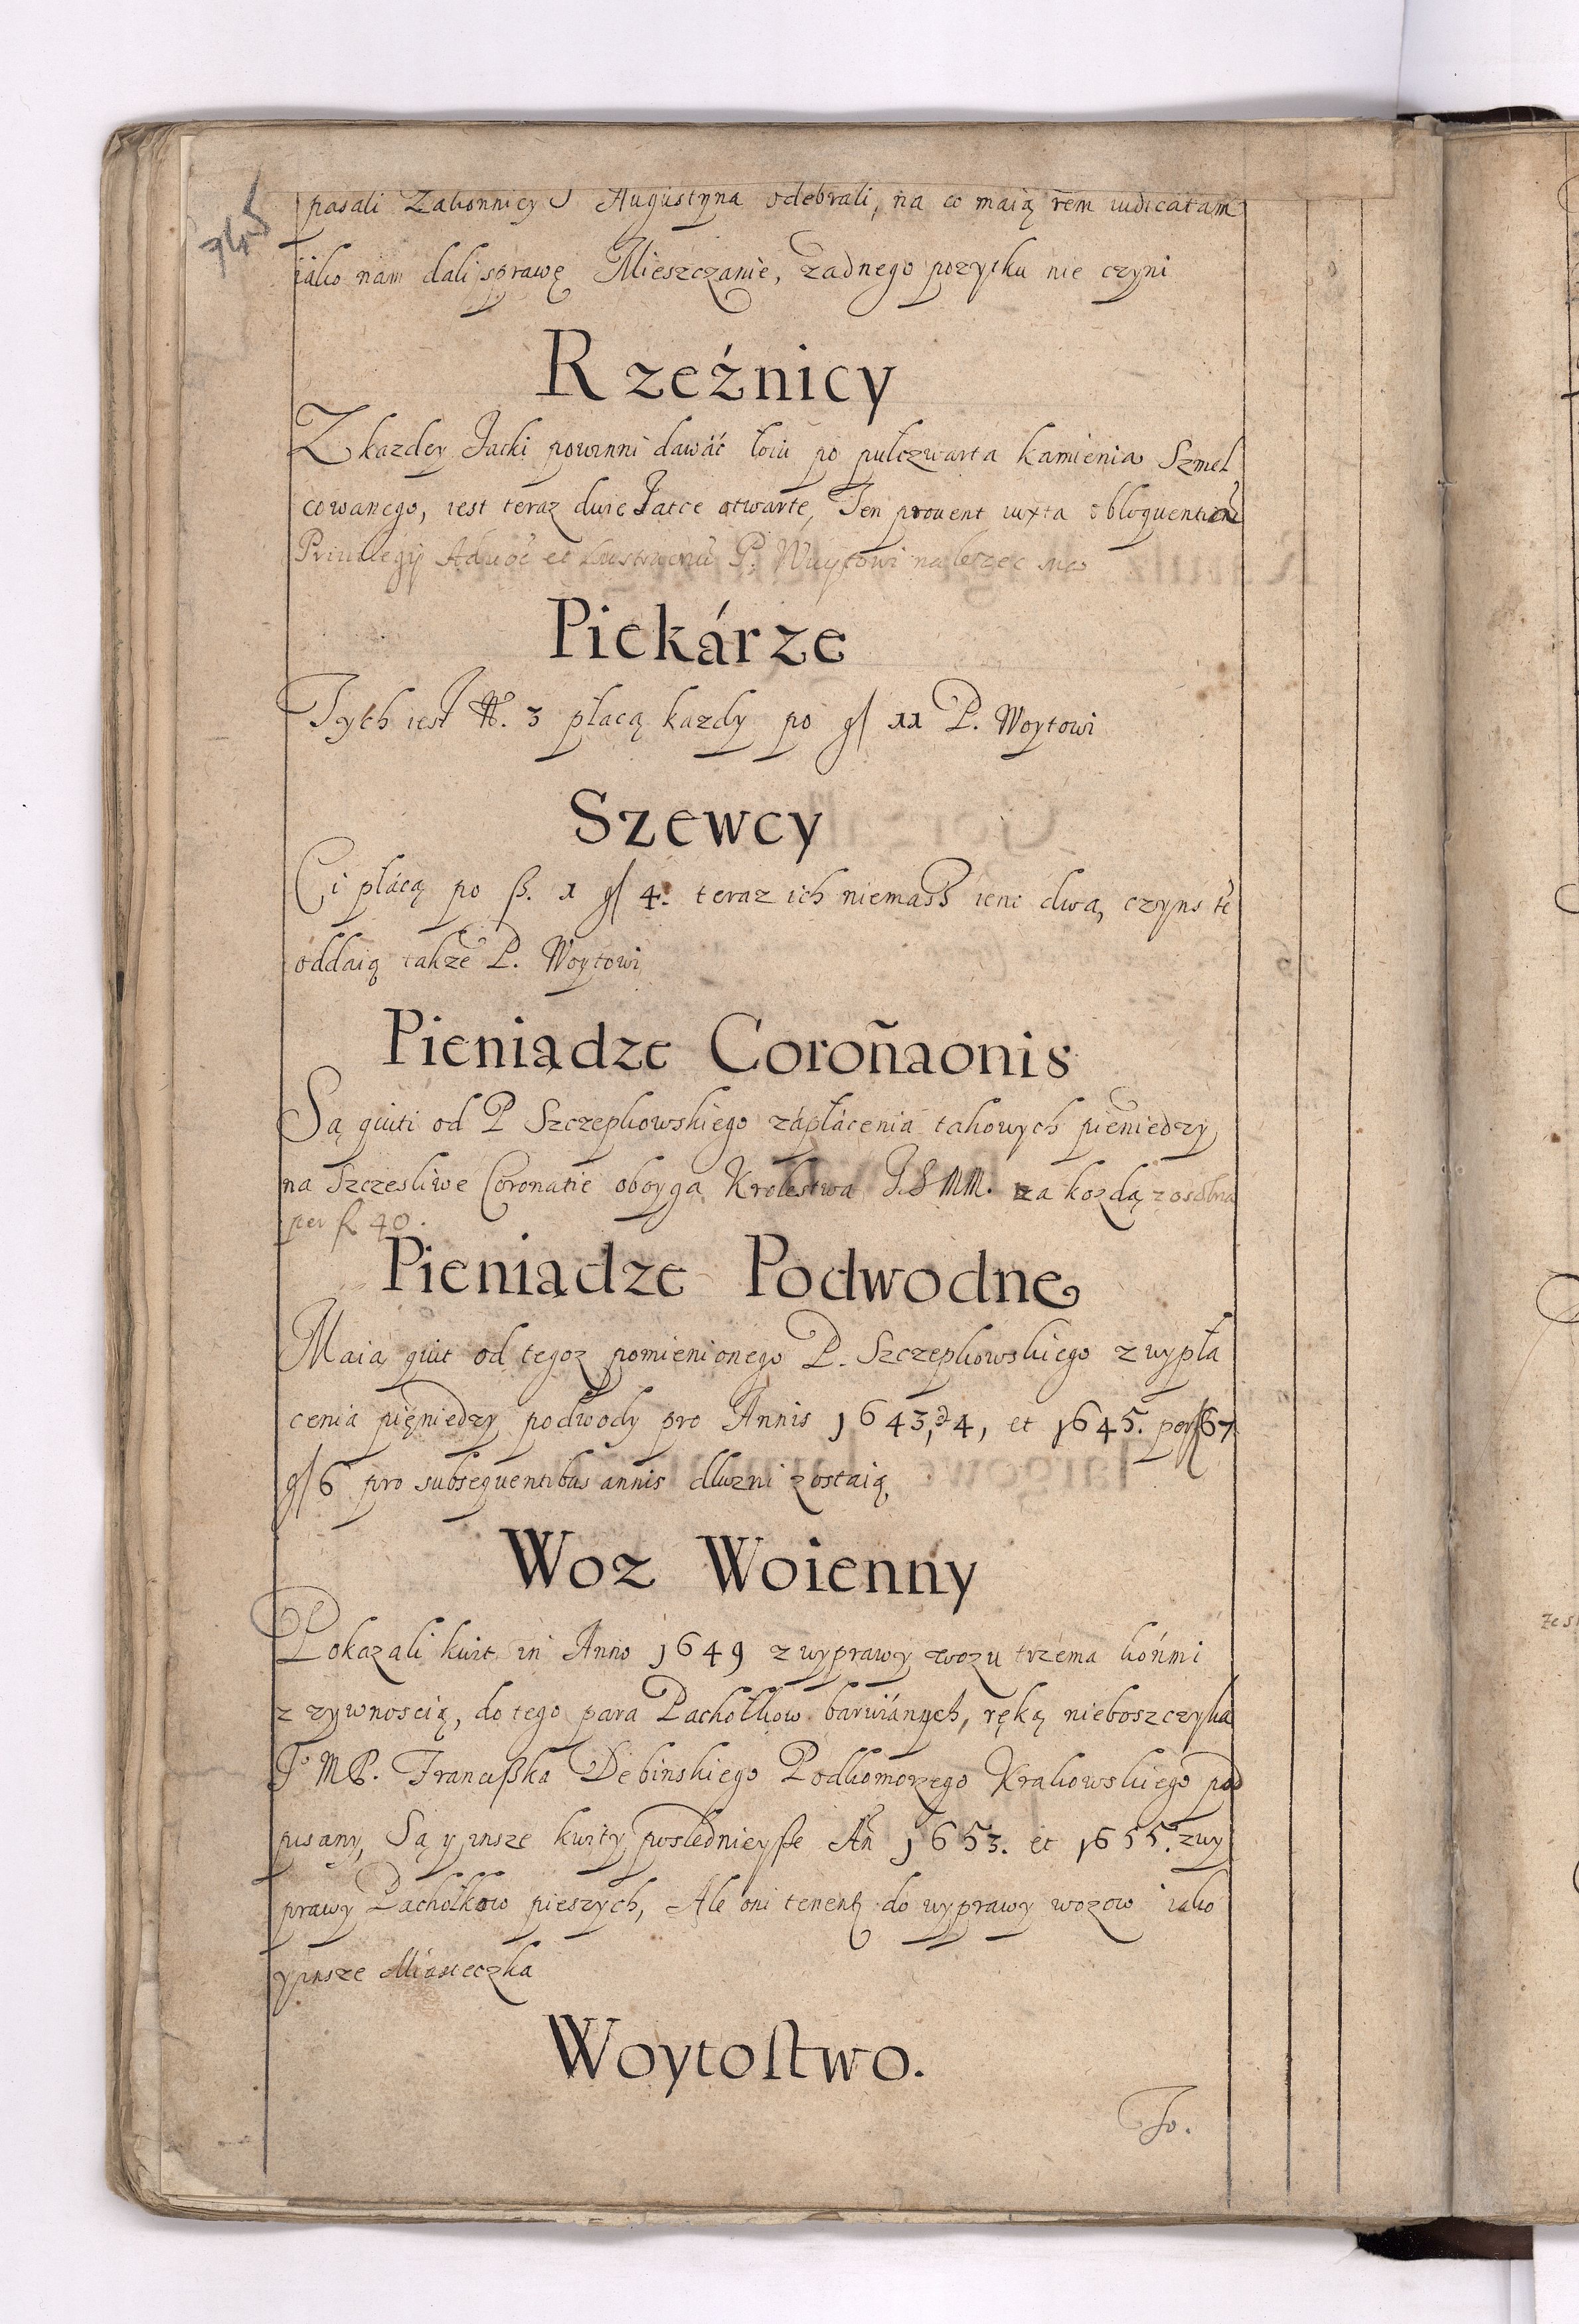 745
pasali Zakonnicy S Augustyna odebrali, na co maią rem iudicatam
iako nam dali sprawę Mieszczanie, zadnego pozytku nie czyni
Rzeźnicy
Z kazdey Jatki powinni dawáć łoiu po pułczwarta kamienia Szmel
cowanego, iest teraz dwie Jatce otwarte, Ten prouent iuxta obloquentiam
Priuilegÿ Aduoc et Lustracyi P. Wuytowi nalezec ma
Piekárze
Tych iest N. 3 płacą kazdy po g/ 11 P. Woytowi
Szewcy
Ci płácą po ß. 1 g/ 4. teraz ich niemasz ieno dwa, czyns te
oddaią takze P. Woytowi
Pieniądze Coroñaonis
Są quiti od P Szczepkowskiego zápłácenia takowych pieniedzy
na Szczesliwe Coronatie oboyga Krolestwa J. K MM. za kozdą z osobna
per f. 40.
Pieniądze Podwodne
Maią quit od tegoz pomienionego P. Szczepkowskiego z wypła
cenia pięniedzy podwody pro Annis 1643, 4, et 1645. per f 67
g/ 6 pro subsequentibus annis dluzni zostaią
Woz Woienny
Pokazali kwit in Anno 1649 z wyprawy wozu trzema kóńmi
z zywnoscią, do tego para Pachołkow barwiánych, ręką nieboszczyka
Je MP. Francißka Debinskiego Podkomorzego Krakowskiego pod
pisany, Są y insze kwity posledniejße An 1653. et 1655. z wy
prawy Pachołkow pieszych, Ale oni tenent do wyprawy wozow iako
y insze Miasteczka
Woytostwo.
To.